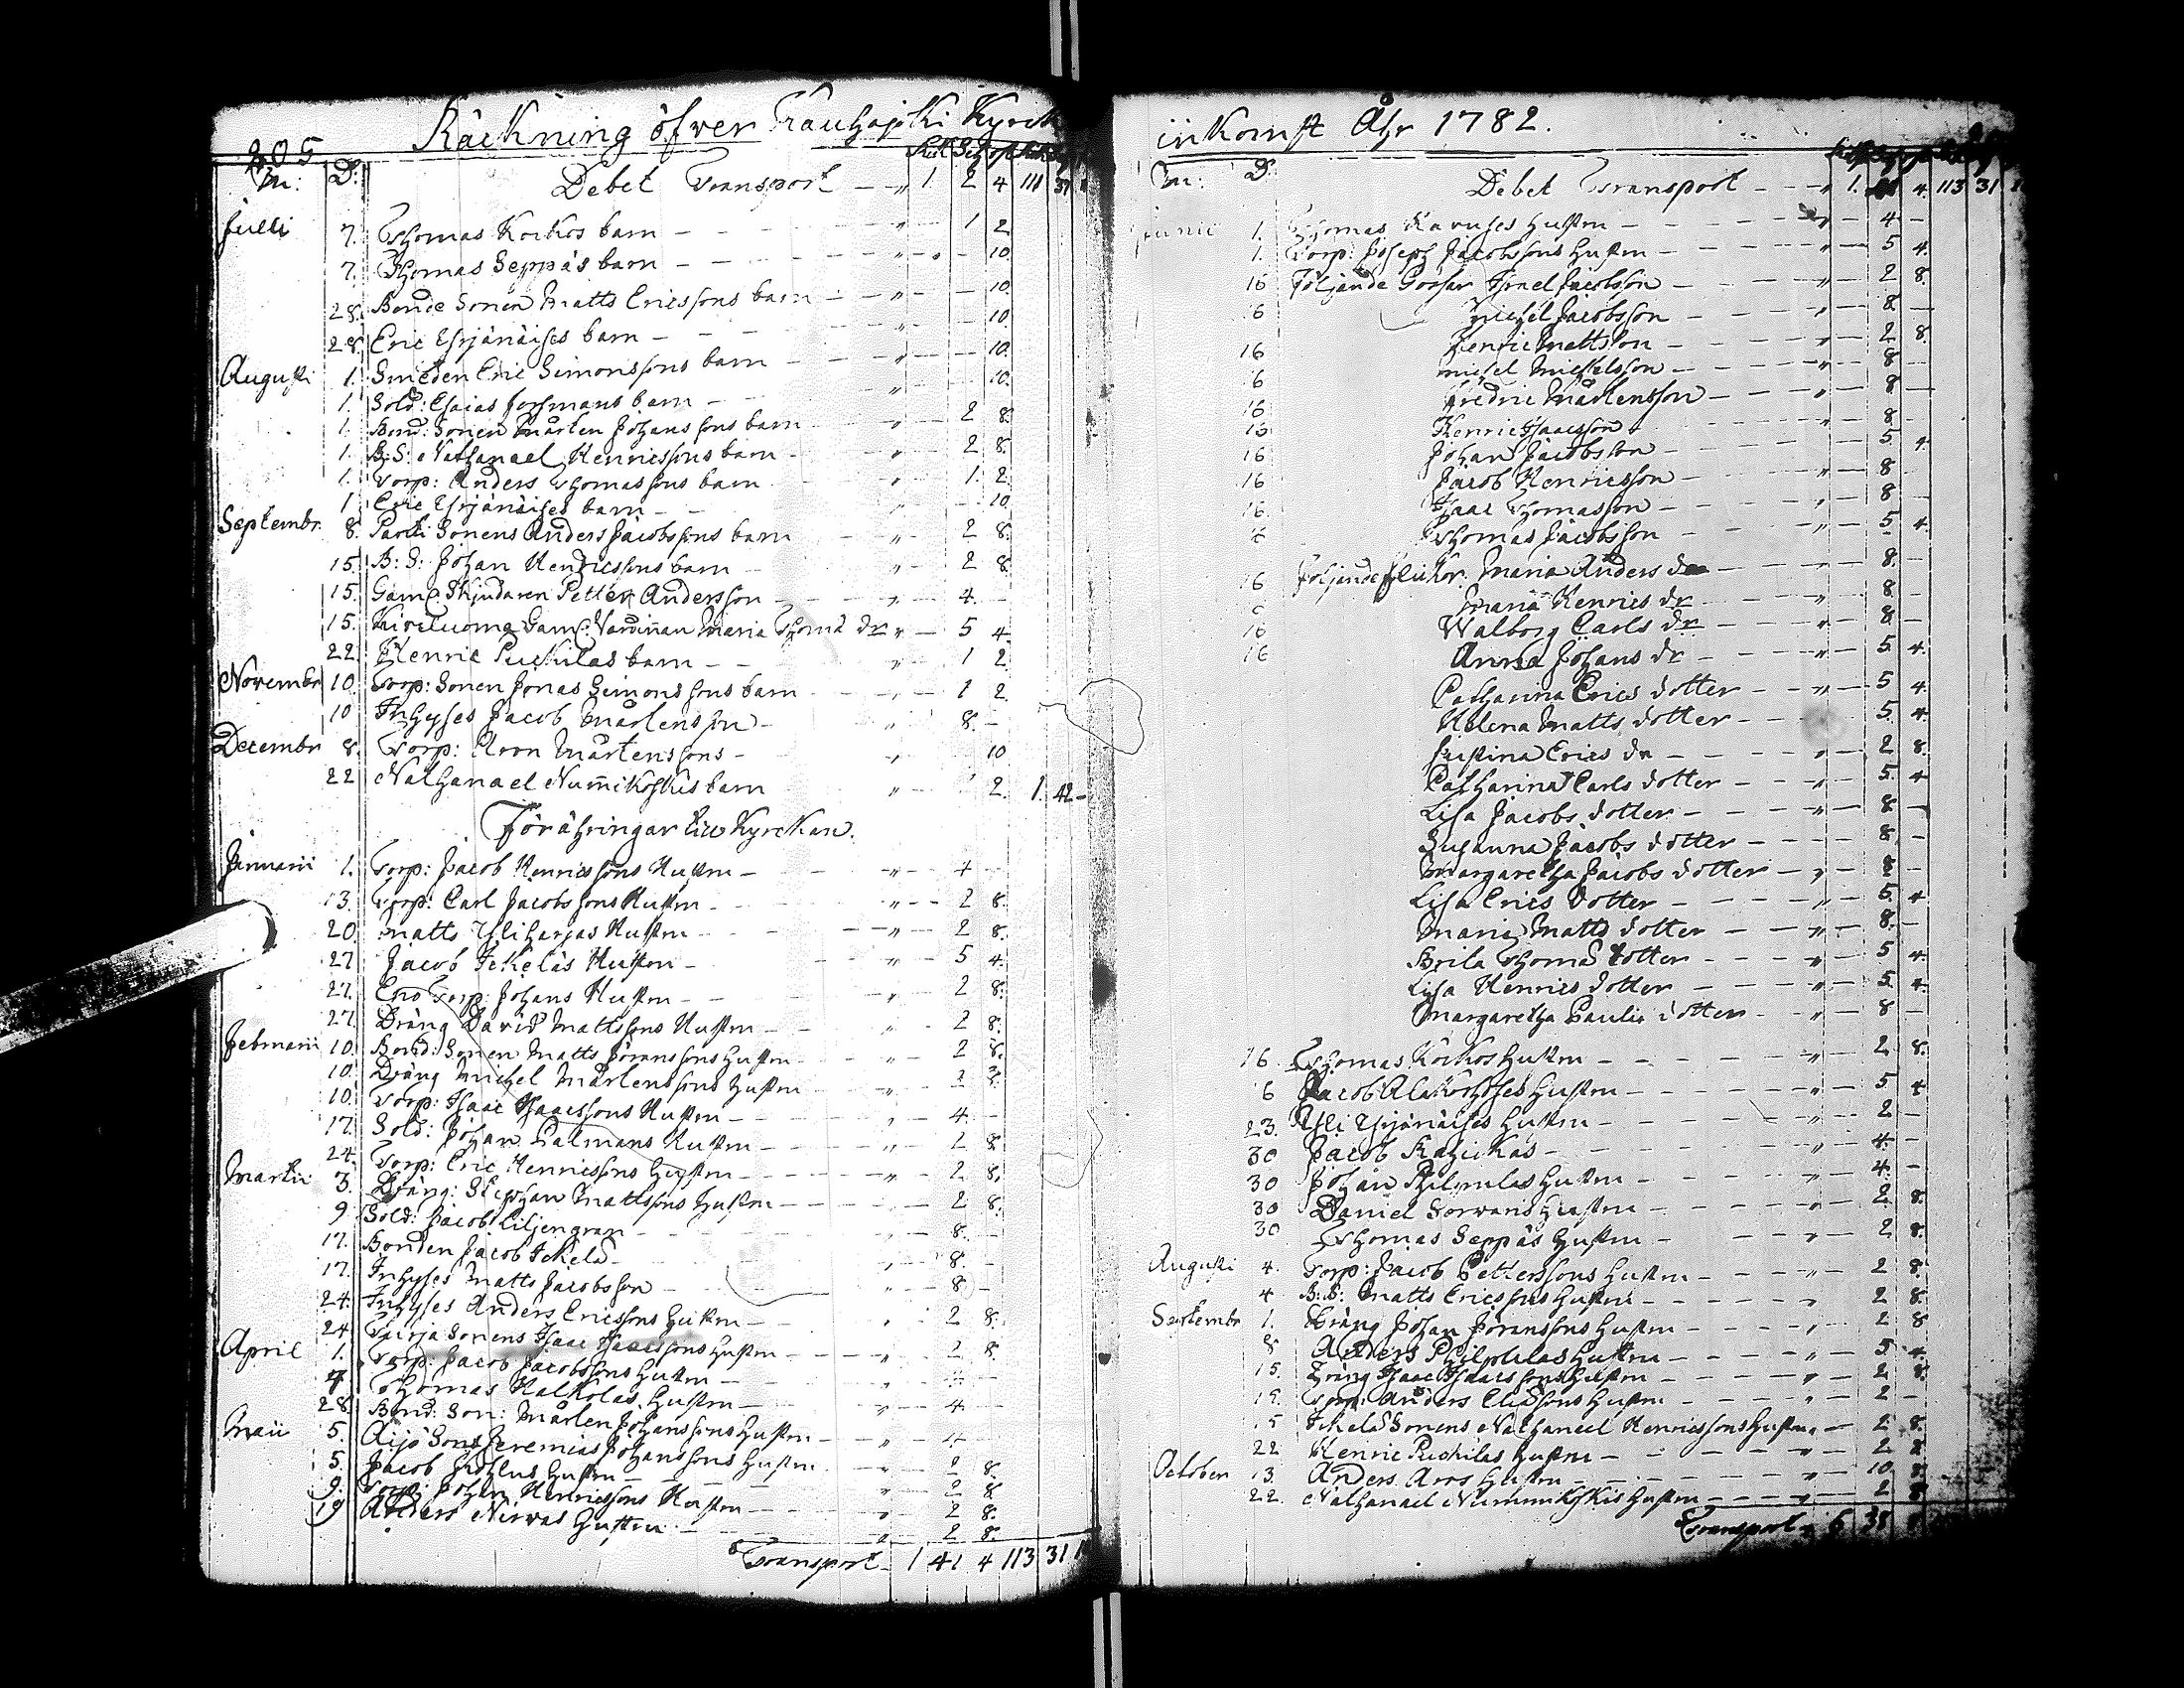 205 Räckning öfver Kauhajoki Kyrck
M: D: Debet Transport — " 1 2 4 111 37
Julii 7. Thomas Korkos barn — 1 2
7. Thomas Seppäs barn — " 10.
28. Bonde Sonen Matts Ericssons barn — " 10.
28. Eric Yrjänäises barn — 10.
Augusti 1. Smeden Eric Simonssons barn — " 10.
1. Sold: Esaias Forsmans barn — " 10.
1. Bond: Sonen Mårten Johanssons barn 2 8.
1. B: S: Nathanael Henricssons barn — " 2 8.
1. Torp: Anders Thomassons barn " 1. 2.
1 Eric Yrjänäises barn — " 10
Septembr. 8. Sonens Anders Jacobssons barn " 2 8.
15. B: S: Johan Hendricssons barn — " 2 8
15. Gaml. Skjudaren Petter Andersson — " 4. —
15. Gaml. Värdinnan Maria Thomä dr " — 5 4
22. Henric Puckilas barn — " 1 2
Novembr 10. Torp: Sonen Jonas Simonssons barn 1 2
10 Inhyses Jacob Mårtensson — " 8. —
Decembr 8. Torp: Aron Mårtenssons — " 10
22 Nathanael Nummikoskis barn " 2. 1. 42 —
Förähringar till Kyrckan.
Januarii 1. Torp: Jacob Henricssons Hustru — " — 4 —
13. Torp: Carl Jacobssons Hustru — " — 2 8.
20. Matts Yliharjas Hustru — " — 2 8.
27 Jacob Ickeläs Hustru — " — 5 4.
27. Torp: Johans Hustru — " — 2 8.
27. Dräng David Mattssons Hustru — " 2 8.
Februarii 10. Bond: Sonen Matts Jöranssons Hustru — " 2 8.
10. Dräng Michel Mårtenssons Hustru "
10. Torp: Isaac Isaacssons Hustru — " 4. —
17. Sold: Johan Palmans Hustru — " 2 8
24. Torp: Eric Henricssons Hustru — " 2 8.
Martii 3. Dräng: Stephan Mattssons Hustru — 2 8.
9 Sold: Jacob Liljengran — 8. —
17. Bonden Jacob Ickelä — " 8. —
17. Inhyses Matts Jacobsson — " 8 —
24. Inhyses Anders Ericssons Hustru — " 2 8.
24 Sonens Isaac Isaacssons Hustru — " 2 8.
April 1. Torp: Jacob Jacobssons Hustru — 4 —
7. Thomas Halkolas Hustru — " 4 —
28. Bond: Son: Mårten Johanssons Hustru — " 4 —
Maii 5. Äijö Sons Jeremias Johanssons Hustru " 2 8.
5. Jacob Hustru — " 2 8
9. Torp: Johan Henricssons Hustru — " 2 8.
19 Anders Nirvas Hustru — " 2 8.
Transport — 1 41 4 113 31
inkomst Åhr 1782.
M: D: Debet Transport — " 1. 41 4. 113 31
Junii 1. Thomas Karuses Hustru — " 4 —
1. Torp: Joseph Jacobssons Hustru — " 5 4.
16 Följande Gossar Israel Jacobsson — " 2 8.
16 Michel Jacobsson — " 8. —
16 Henric Mattsson — " 2 8.
16 Michel Michelsson — 8 —
16 Fredric Mårtensson — " 8 —
16 Henric Isaacsson — 8 —
16 Johan Jacobsson — 5 4.
16 Jacob Henricsson — " 8 —
16. Isaac Thomasson — " 8 —
Thomas Jacobsson — " 5 4.
16 Följande Flickor: Maria Anders dr — 8. —
Maria Henrics dr — " 8 —
16 Walborg Carls dr — " 8 —
16 Anna Johans dr — " 5 4.
Catharina Erics dotter — " 5 4.
Helena Matts dotter — " 5. 4.
Justina Erics dr — " 2 8.
Catharina Carls dotter — " 5. 4.
Lisa Jacobs dotter — " 8. —
Susanna Jacobs dotter — 8 —
Margaretha Jacobs dotter — " 8 —
Lisa Erics dotter — " 5 4
Maria Matts dotter — " 8. —
Brita Thomä dotter — " 5 4.
Lisa Henrics dotter — " 5. 4.
Margaretha Paulii dotter — " 8 —
16. Thomas Korkos Hustru — " 2 8.
6 Jacob Hustru — " 5 4
23. Yli Yrjänäises Hustru — " 2 —
30 Jacob — " 4. —
30 Johan Philpulas Hustru — " 4. —
30 Daniel Sorvaris Hustru — " 2 8.
30 Thomas Seppäs Hustru — " 2 8.
Augusti 4. Torp: Jacob Petterssons Hustru — " 2 8.
4 B: S: Matts Ericssons Hustru — " 2 8.
Septembr 1. Dräng Johan Jöranssons Hustru — " 2 8
8 Anders Philpulas Hustru — " 5 4.
15. Dräng Isaac Isaacssons Hustru — " 2 8.
15. Torp: Anders Hustru — " 2 —
15 Ickelä Sonens Nathanael Henricssons Hustru " — 2 8.
22 Henric Puckilas Hustru — " 2 8
October 13. Anders Aros Hustru — " 10 8.
22. Nathanael Nummikoskis Hustru — " 2 8
Transport " 6 38 8